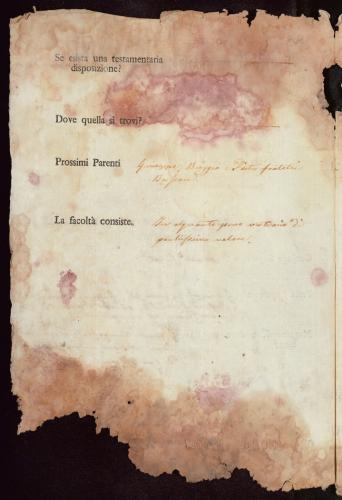 Se esista una testamentaria
disposizione?
Dove quella si trovi?
Prossimi Parenti Giuseppe, Biaggio e Pietro fratelli
La facoltà consiste. In alquanto
valore.